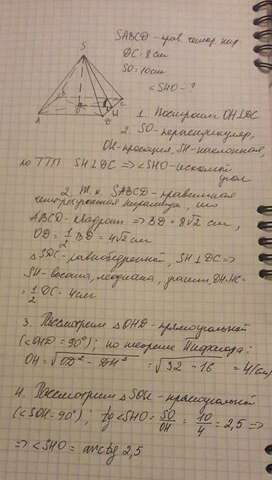 SABCD - прав. четыр. пир
DC = 8 см
SO = 10 см
∠SHO - ?
S
A
B
C
D
O
H
1. Построим OH⊥DC
2. SO - перпендикуляр,
OH - проекция, SH - наклонная,
по ТТП SH⊥DC ⇒ ∠SHO - искомый
угол
2. Т.к. SABCD - правильная
четырехугольная пирамида, то
ABCD - квадрат ⇒ BD = 8√2 см,
OD = 1/2 BD = 4√2 см
△SDC - равнобедренный, SH⊥DC ⇒
SH - высота, медиана, значит DH=HC=
= 1/2 DC = 4 см
3. Рассмотрим △OHD - прямоугольный
(∠OHD = 90°); по теореме Пифагора:
OH = √OD² - DH² = √32 - 16 = 4 (см)
4. Рассмотрим △SOH - прямоугольный
(∠SOH = 90°); tg∠SHO = SO/OH = 10/4 = 2,5 ⇒
⇒ ∠SHO = arctg 2,5